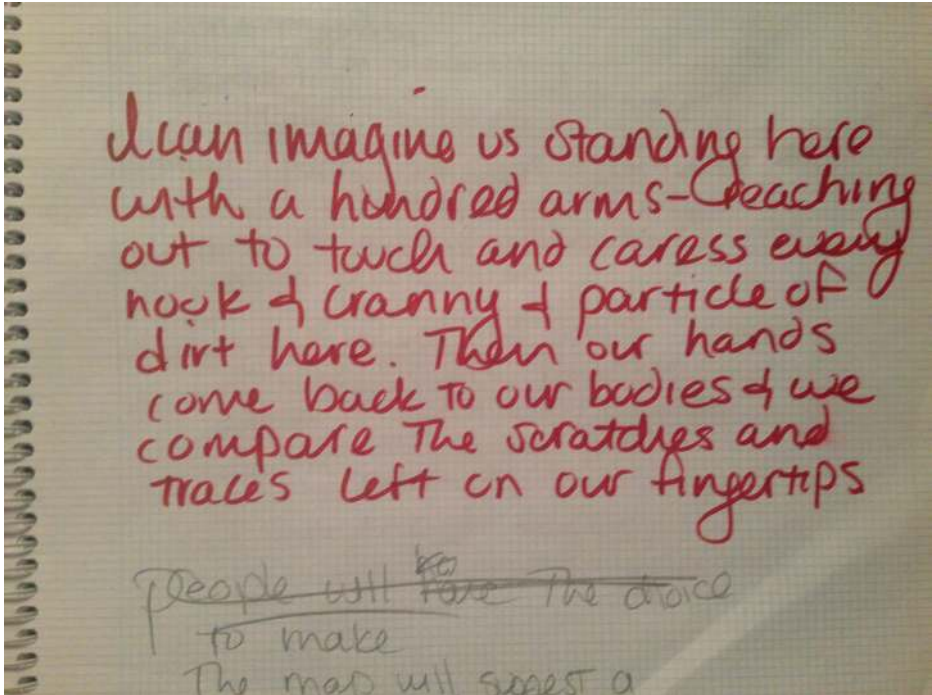 I can imagine us standing here
with a hundred arms - reaching
out to touch and caress every
nook & cranny & particle of
dirt here. Then our hands
come back to our bodies & we
compare The scratches and
traces left on our fingertips
people will have The choice
to make
The map will suggest a